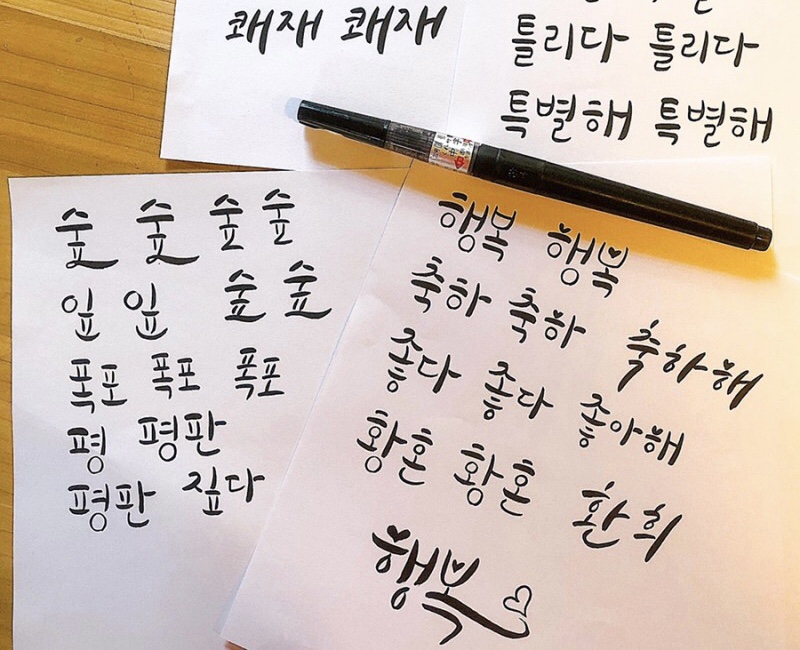 쾌재 쾌재
틀리다 틀리다
특별해 특별해
숲 숲 숲 숲
잎 잎 숲 숲
폭포 폭포 폭포
평 평판
평판 짚다
행복 행복
축하 축하 축하해
좋다 좋다 좋아해
황혼 황혼 환희
행복